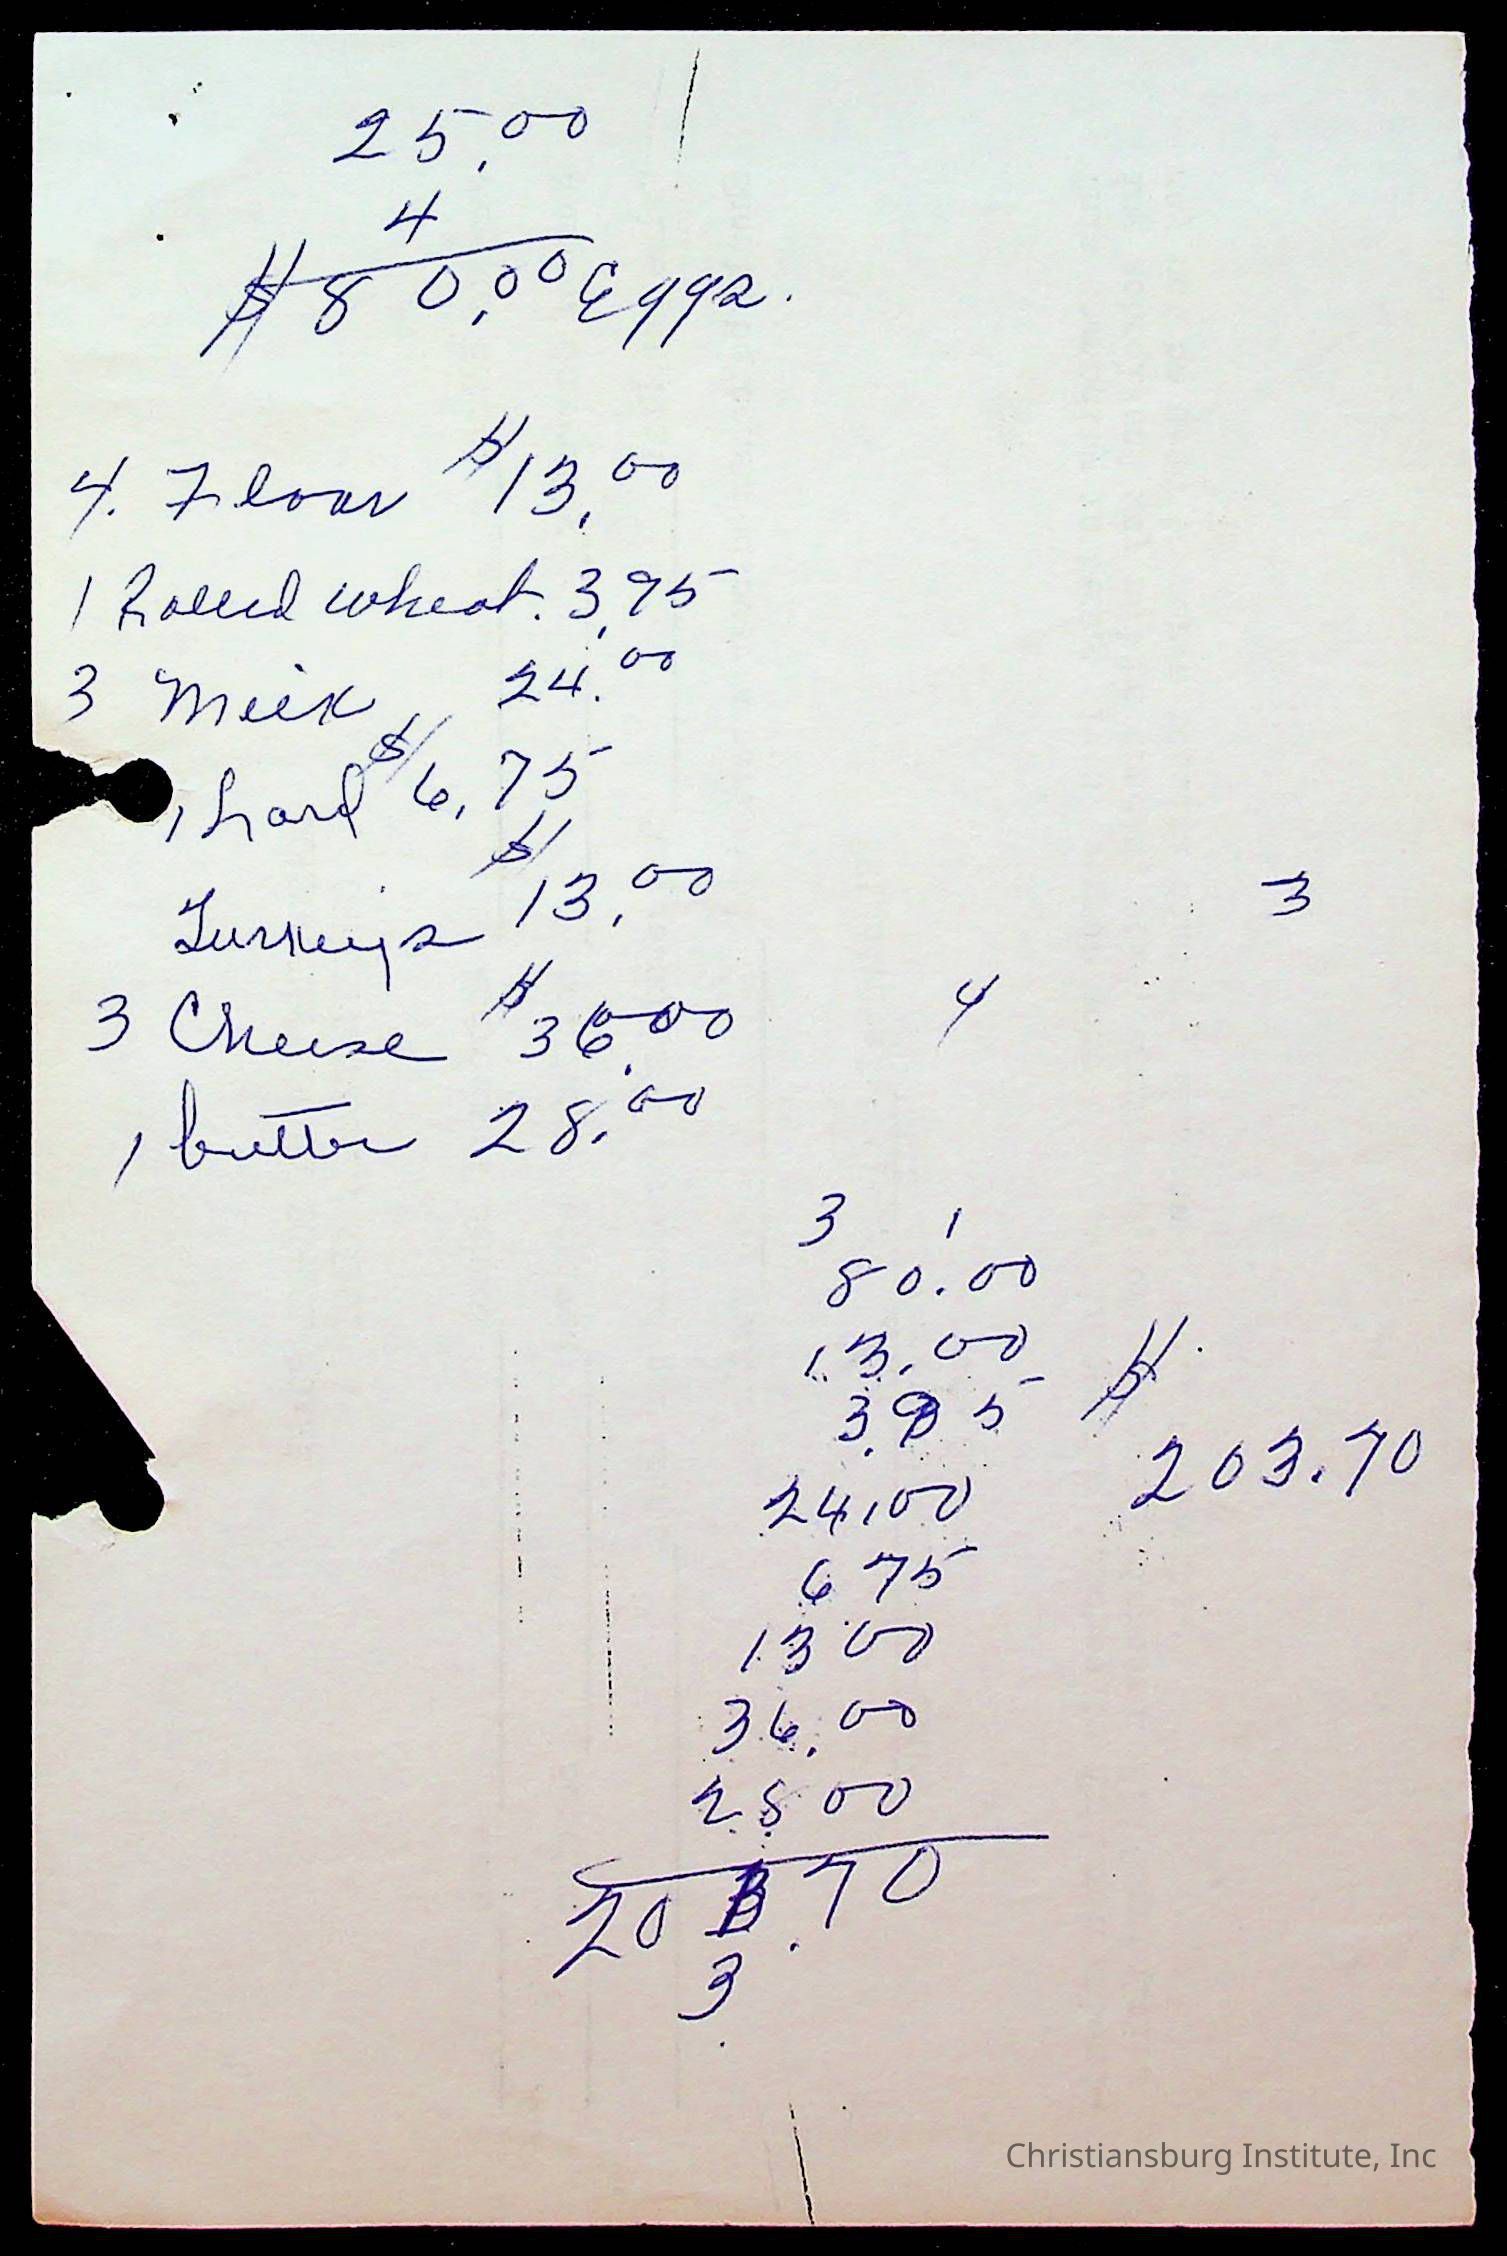 25.00
4
$80.00 Eggs.
4. Flour $13.00
1 Rolled wheat. 3.95
3 Milk 24.00
1 Lard $6.75
Turkeys $13.00
3 Cheese $36.00
1 butter 28.00
3
4
3 1
80.00
13.00
3.95
24.00
6 75
13 00
36.00
28 00
203.70
3
$
203.70
Christiansburg Institute, Inc